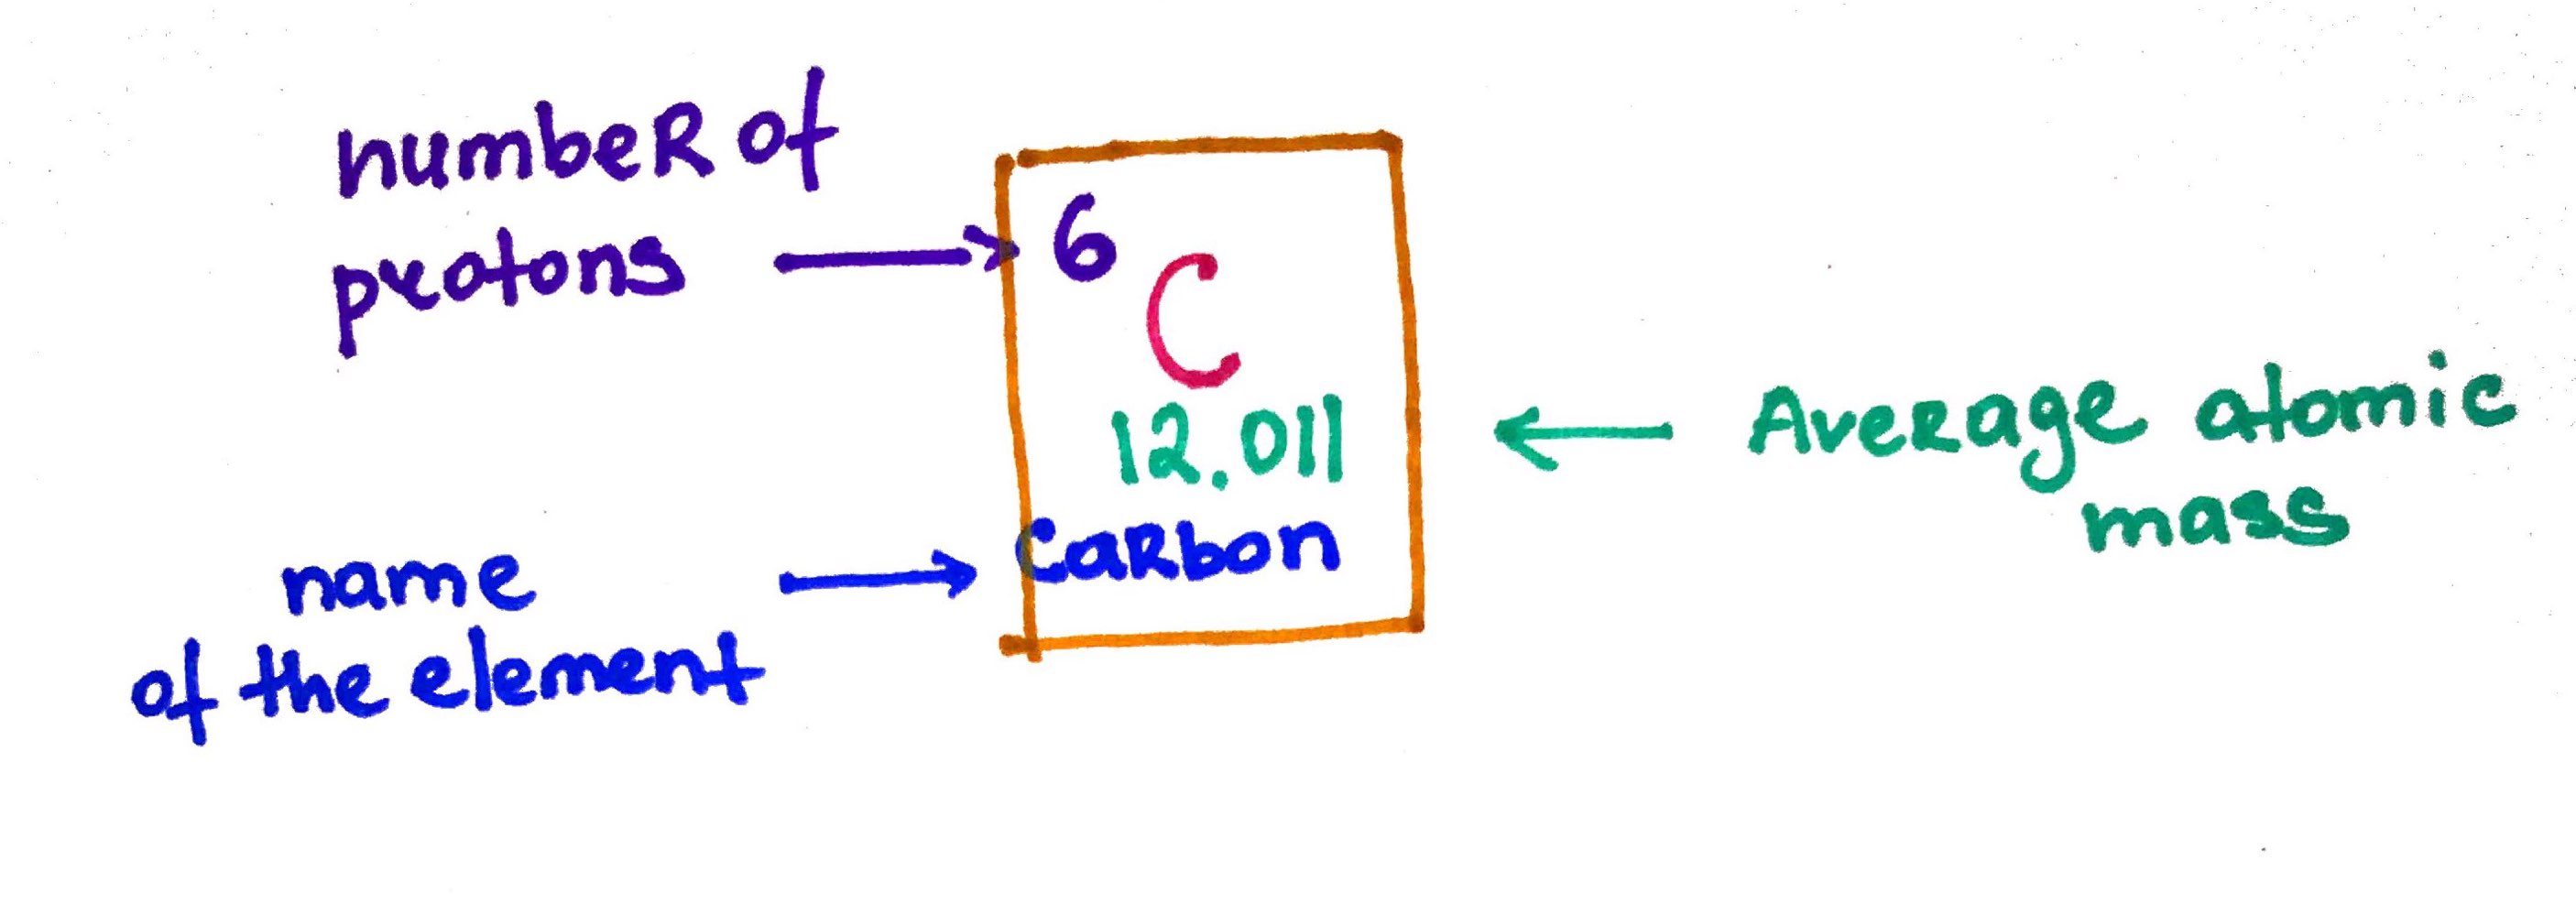 number of
protons
6
C
12.011
Average atomic
mass
Carbon
name
of the element